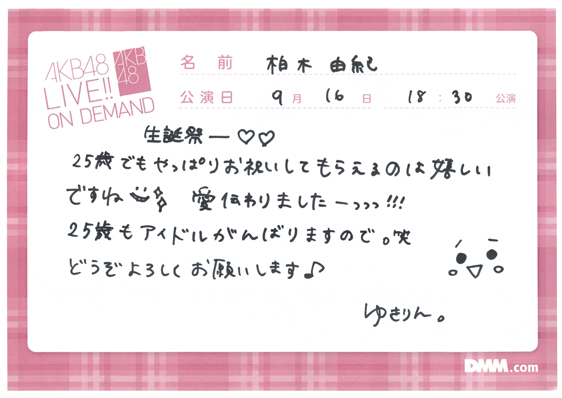 AKB48
LIVE!!
ON DEMAND
AKB
48
名前 柏木 由紀
公演日 9月 16日 18:30 公演
生誕祭ー♡♡
25歳でもやっぱりお祝いしてもらえるのは嬉しい
ですね 愛伝わりましたーっっっ!!!
25歳もアイドルがんばりますので。笑
どうぞよろしくお願いします♪
ゆきりん。
DMM.com